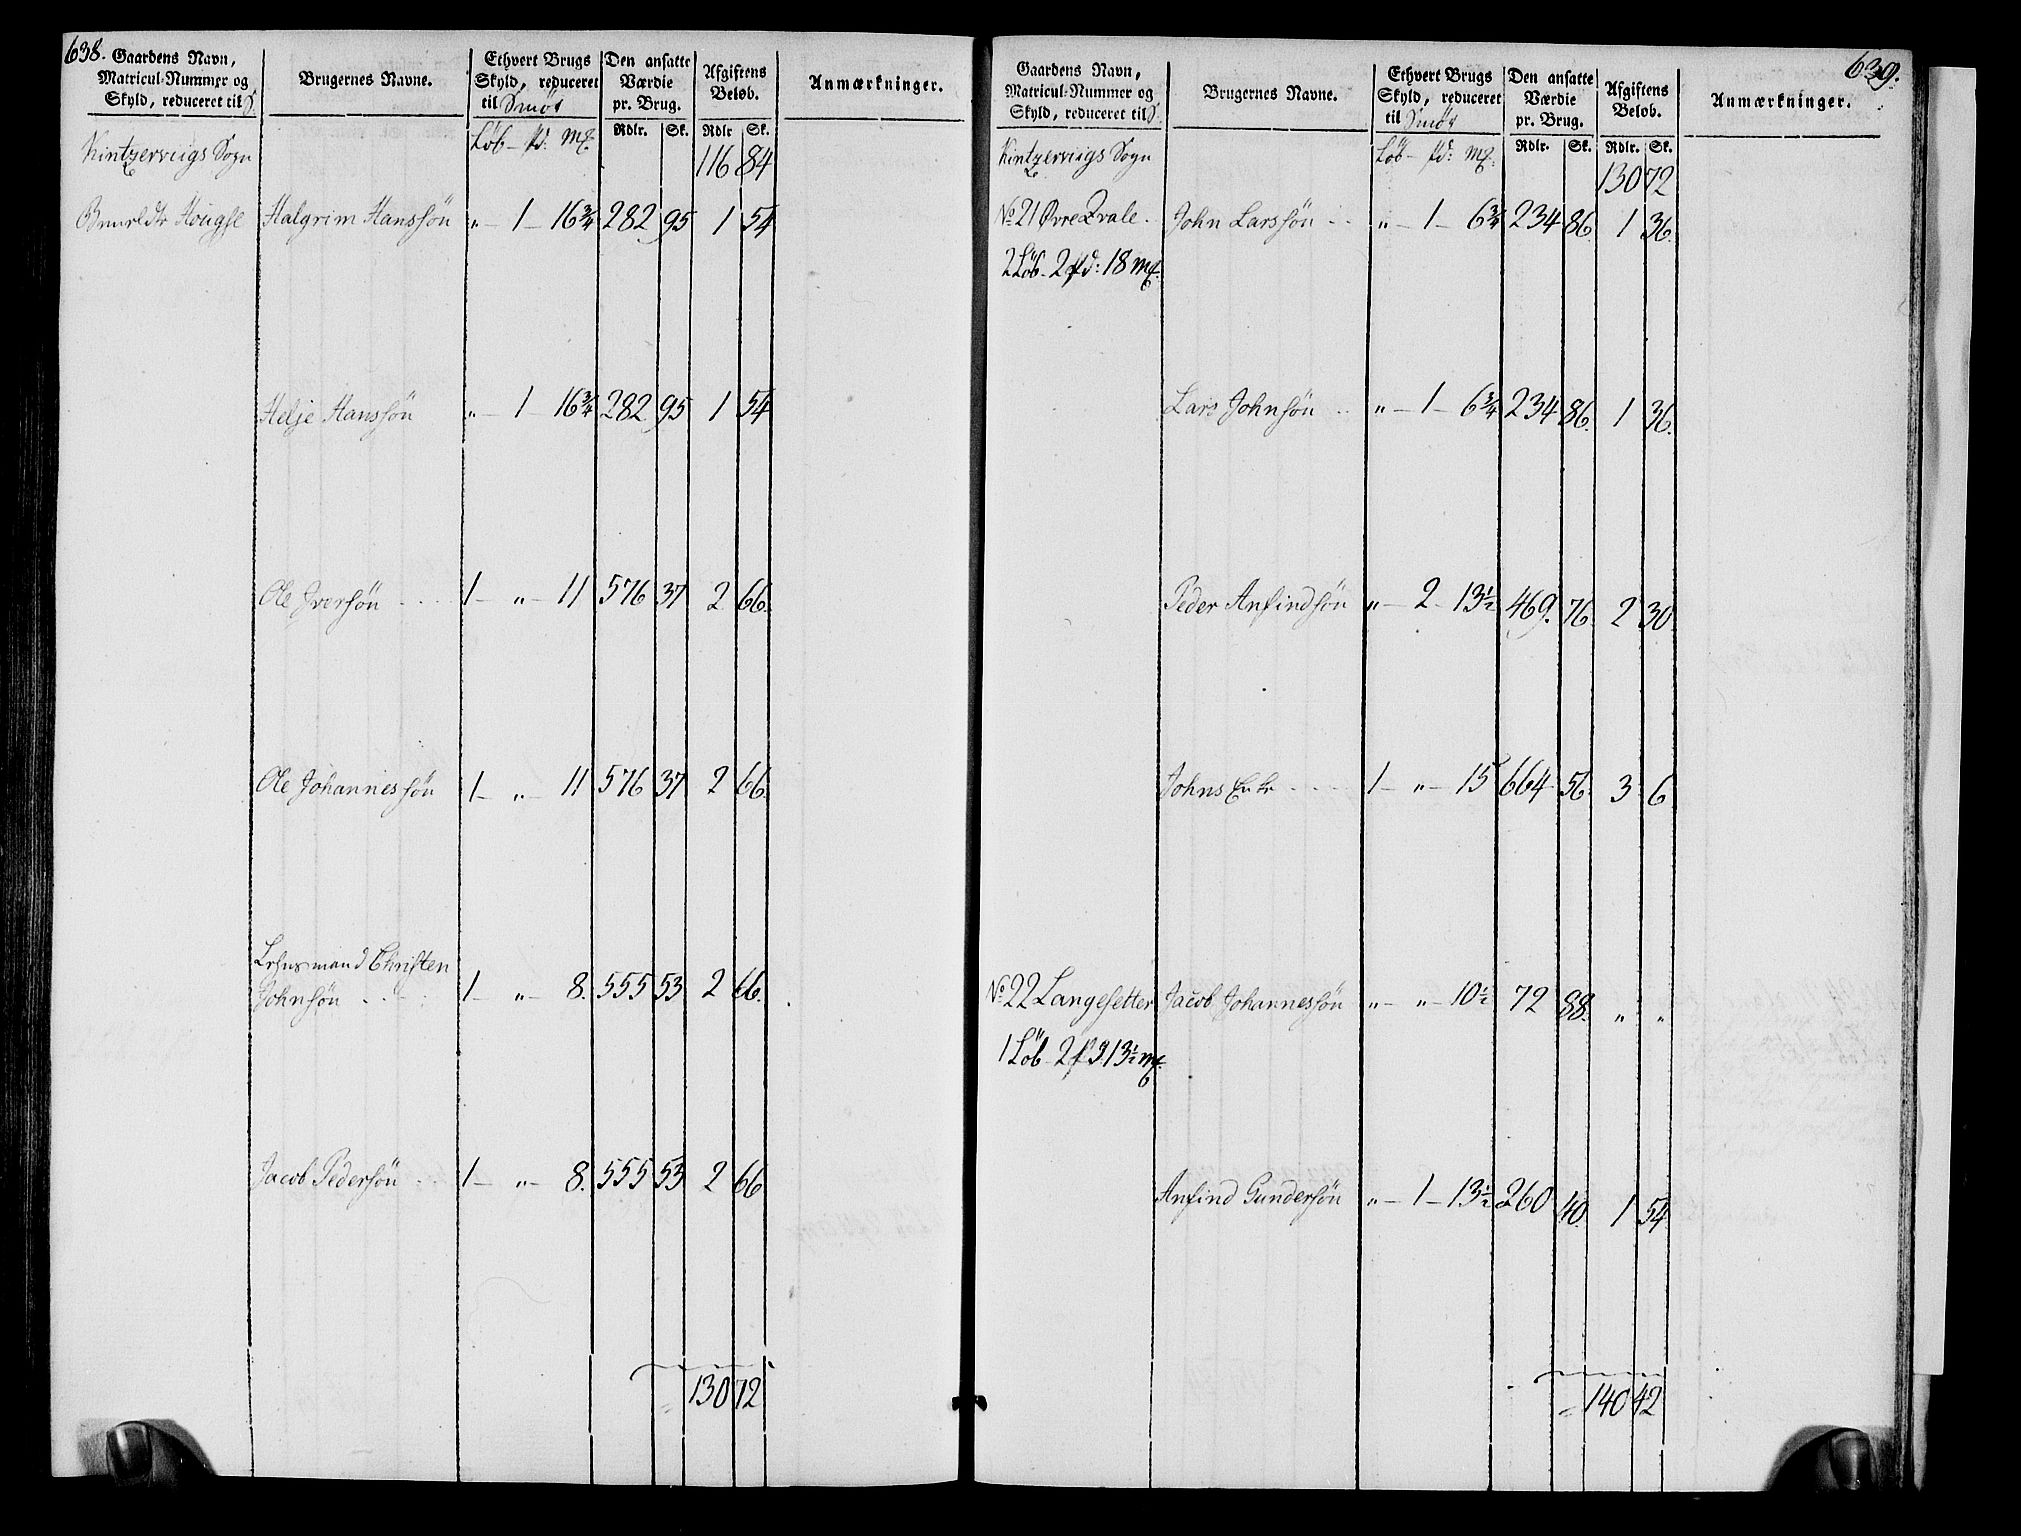 638.
Gaardens Navn, Matricul-Nummer og Skyld, reduceret til S. | Brugernes Navne. | Ethvert Brugs Skyld, reduceret til Smör | Den ansatte Værdie pr. Brug. | Afgiftens Beløb. | Anmærkninger.
Kintzerviigs Sogn | Löb - pd: mk. | Rdlr. Sk. | Rdlr Sk.
116 84
Hougse Halgrim Hanssøn „ - 1 - 16 3/4 282 95 1 54
Helje Hanssøn „ - 1 - 16 3/4 282 95 1 54
Ole Iversøn 1 - „ - 11 576 37 2 66.
Ole Johannessøn 1 - „ - 11 576 37 2 66.
Lehnsmand Christen
Johnsøn 1 - „ - 8. 555 53 2 66.
Jacob Pedersøn 1 - „ - 8. 555 53 2 66
130 72
639.
Gaardens Navn, Matricul-Nummer og Skyld, reduceret til S. | Brugernes Navne. | Ethvert Brugs Skyld, reduceret til Smör | Den ansatte Værdie pr. Brug. | Afgiftens Beløb. | Anmærkninger.
Kintzerviigs Sogn | Löb - pd: mk. | Rdlr. Sk. | Rdlr. Sk.
130 72
No 21 Øvre Qvale John Larssøn „ - 1 - 6 3/4 234 86. 1 36.
2 Löb - 2 pd: 18 mk.
Lars Johnsøn „ - 1 - 6 3/4 234 86. 1 36.
Peder Anfindsøn „ - 2 - 13 1/2 469. 76. 2 30.
Johns Enke 1 - „ - 15 664 56. 3 6.
No 22 Langesetter Jacob Johannessøn „ - „ - 10 1/2 72 88. „ „
1 Löb - 2 pd 13 1/2 mk.
Anfind Gundersøn „ - 1 - 13 1/2 260 40. 1 54
140 42